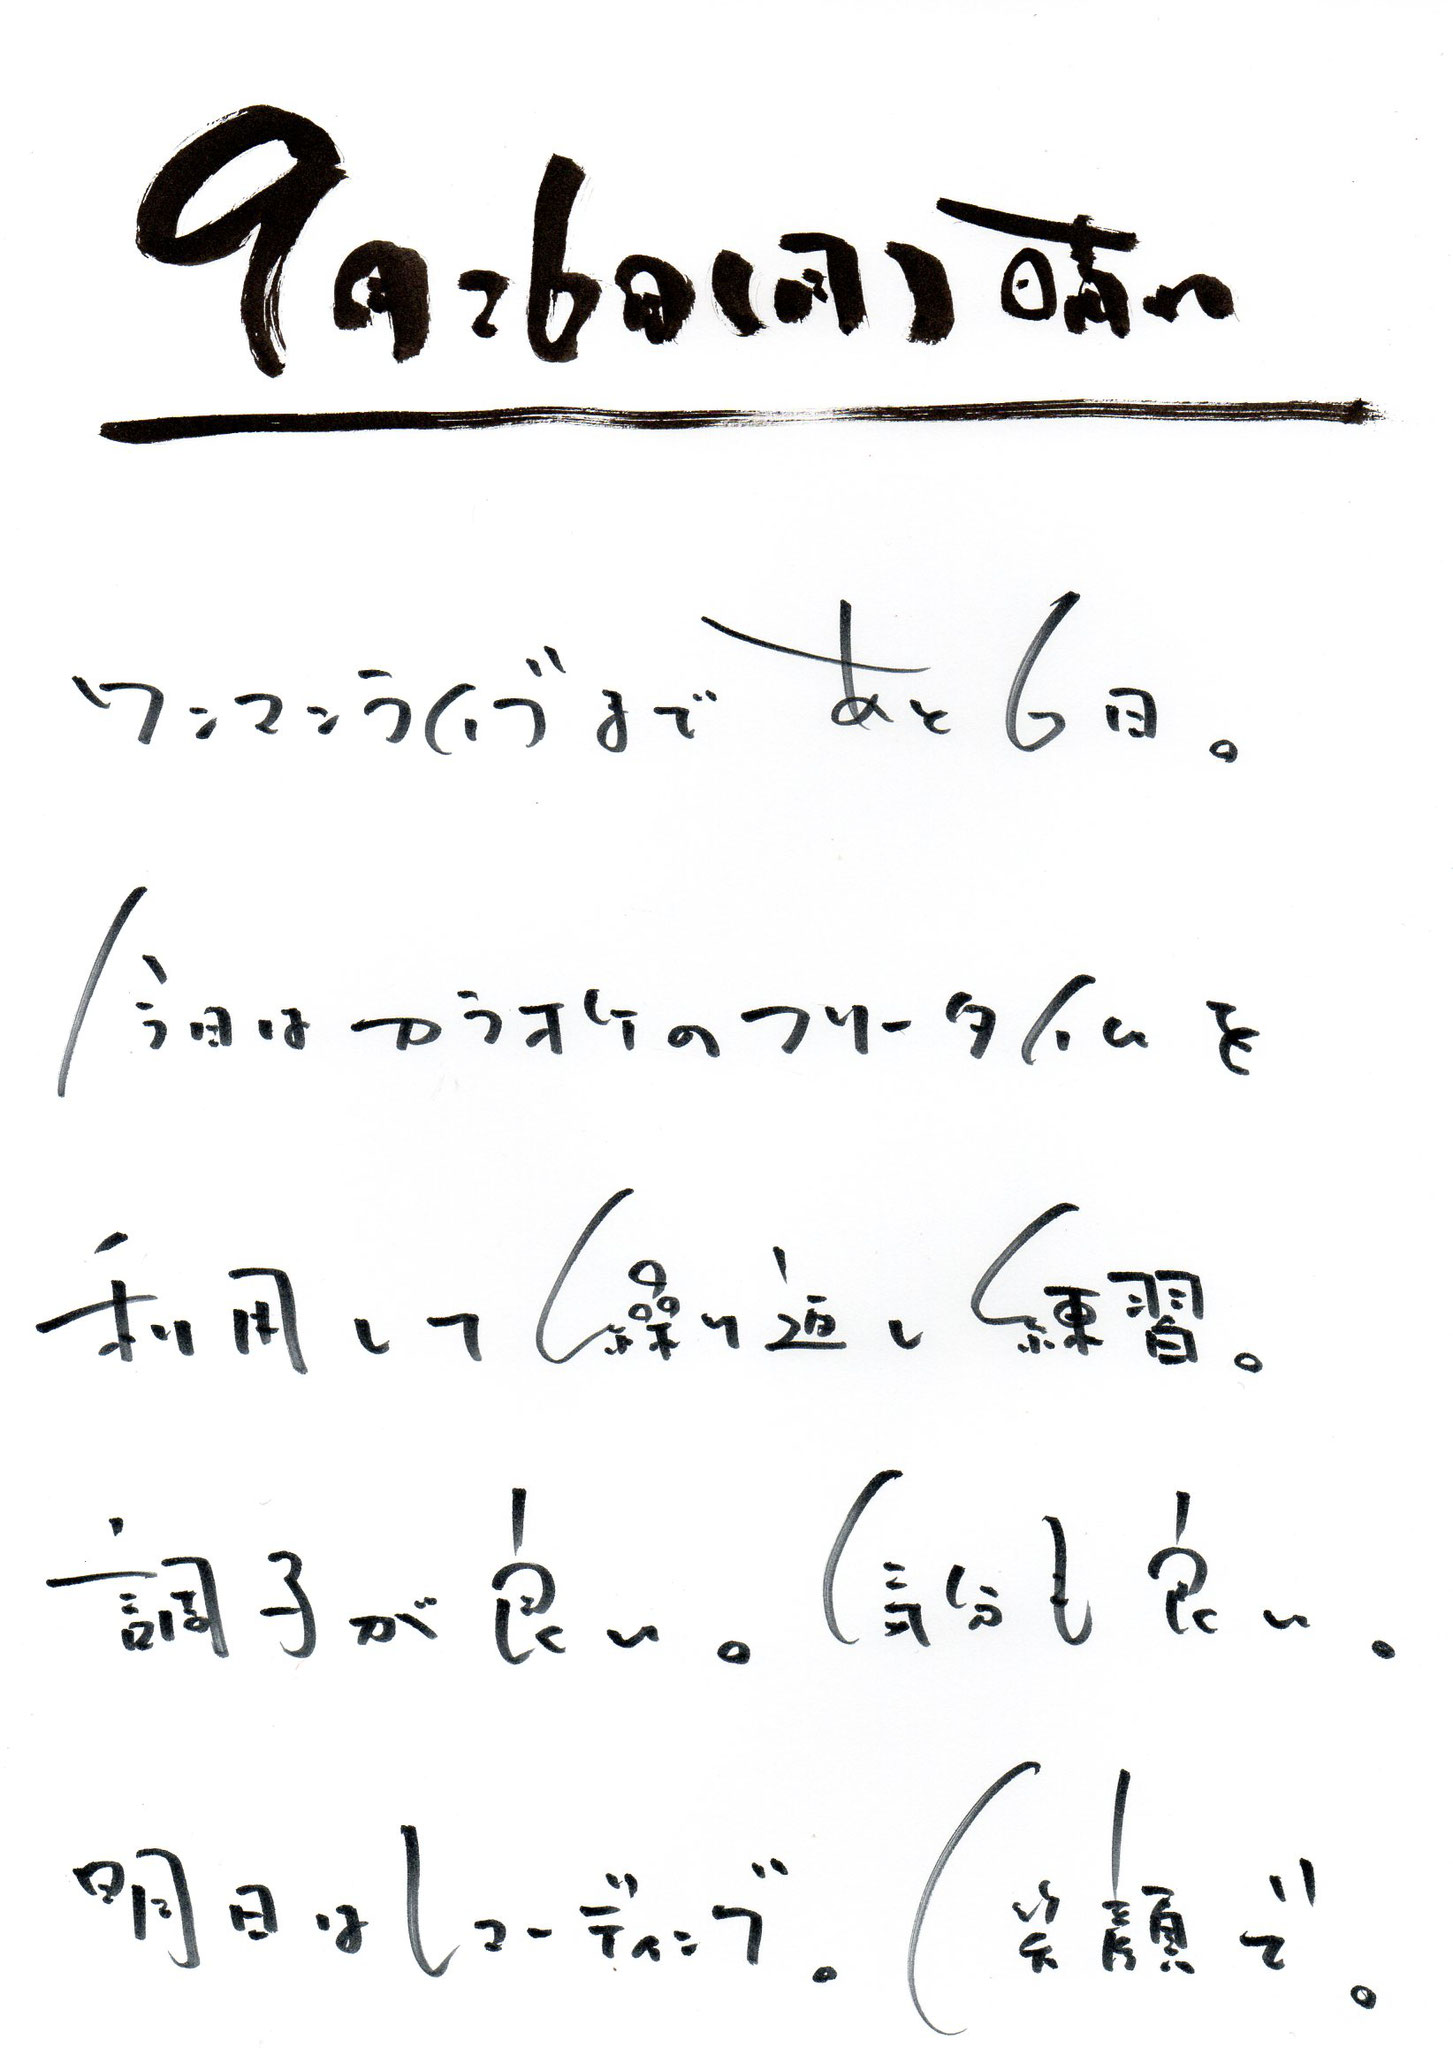 9月26日(月)晴れ
ワンマンライブまであと6日。
今日はカラオケのフリータイムを
利用して繰り返し練習。
調子が良い。気分も良い。
明日はレコーディング。笑顔で。